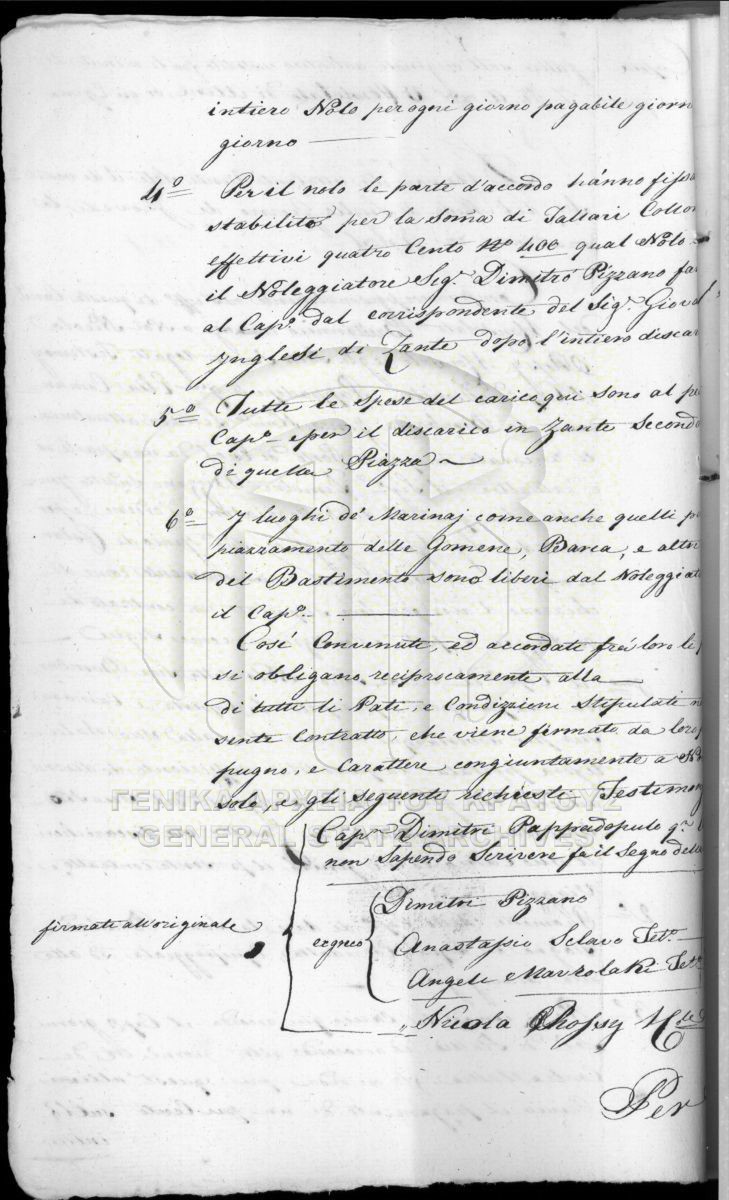 intiero Nolo per ogni giorno pagabile giorn
giorno
4º Per il nolo le parte d'accordo hánno fissa
stabilito per la Soma di Tallari Collon
effettivi quatro Cento Nº 400 qual Nolo
il Noleggiatore Segr. Dimitró Pizzano fa
al Capº. dal corrispondente del Sigr. Giova
Ynglesi di Zante dopo l'intiero discar
5º Tutte le Spese del carico qui sono al
Capº. e per il discarico in Zante Secondo
di quella Piazza
6º Y luoghi de' Marinaj come anche quelli
piazzamento delle Gomene, Barca, e altri
del Bastimento sono liberi dal Noleggiat
il Capº.
Cosí Convenute, ed accordate frà loro le
si obligano reciprocamente alla
di tutti li Pati, e Condizzioni Stipulati
sente Contratto, che viene firmato da loro
pugno, e Carattere congiuntamente a
solo, e gli seguente richiesti Testimonj
ΓΕΝΙΚΑ ΑΡΧΕΙΑ ΤΟΥ ΚΡΑΤΟΥΣ
GENERAL STATE ARCHIVES
Capº. Dimitri Pappadopulo qm.
non Sapendo Scrivere fa il Segno della
firmati all'originale
ergreco
Dimitri Pizzano
Anastassio Sclavo Tetº.
Angeli Mavrolaki Tetº.
Nicola Rhossy
Per